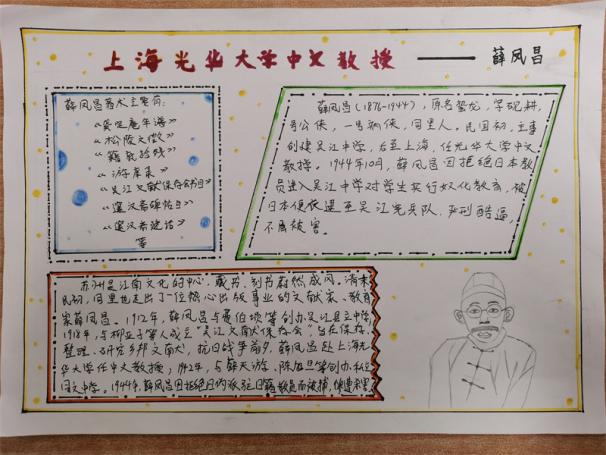 上海光华大学中文教授——薛凤昌
薛凤昌著术主要有:
《松陵文徵》
《籍底拾残》
《游庠录》
《吴江文献保存会书目》
《邃汉斋碑帖目》
《邃汉斋谜话》
等
薛凤昌(1876-1944),原名蛰龙,字砚耕,
号公侠,一号病侠,同里人。民国初,主事
创建吴江中学,后至上海,任光华大学中文
教授。1944年10月,薛凤昌因拒绝日本教
员进入吴江中学对学生实行奴化教育,被
日本便衣逮至吴江宪兵队,严刑酷逼,
不屈被害。
苏州是江南文化的中心,藏书、刻书蔚然成风。清末
民初,同里也走出了一位热心出版事业的文献家、教育
家薛凤昌。1912年,薛凤昌与费伯埙等创办吴江县立中学,
1918年,与柳亚子等人成立"吴江文献保存会",旨在保存、
整理、研究乡邦文献,抗日战争前夕,薛凤昌赴上海光
华大学任中文教授,1942年,与薛天游、陈旭旦等创办私立
同文中学。1944年,薛凤昌因拒绝日伪派驻日籍教员而被捕,惨遭杀害